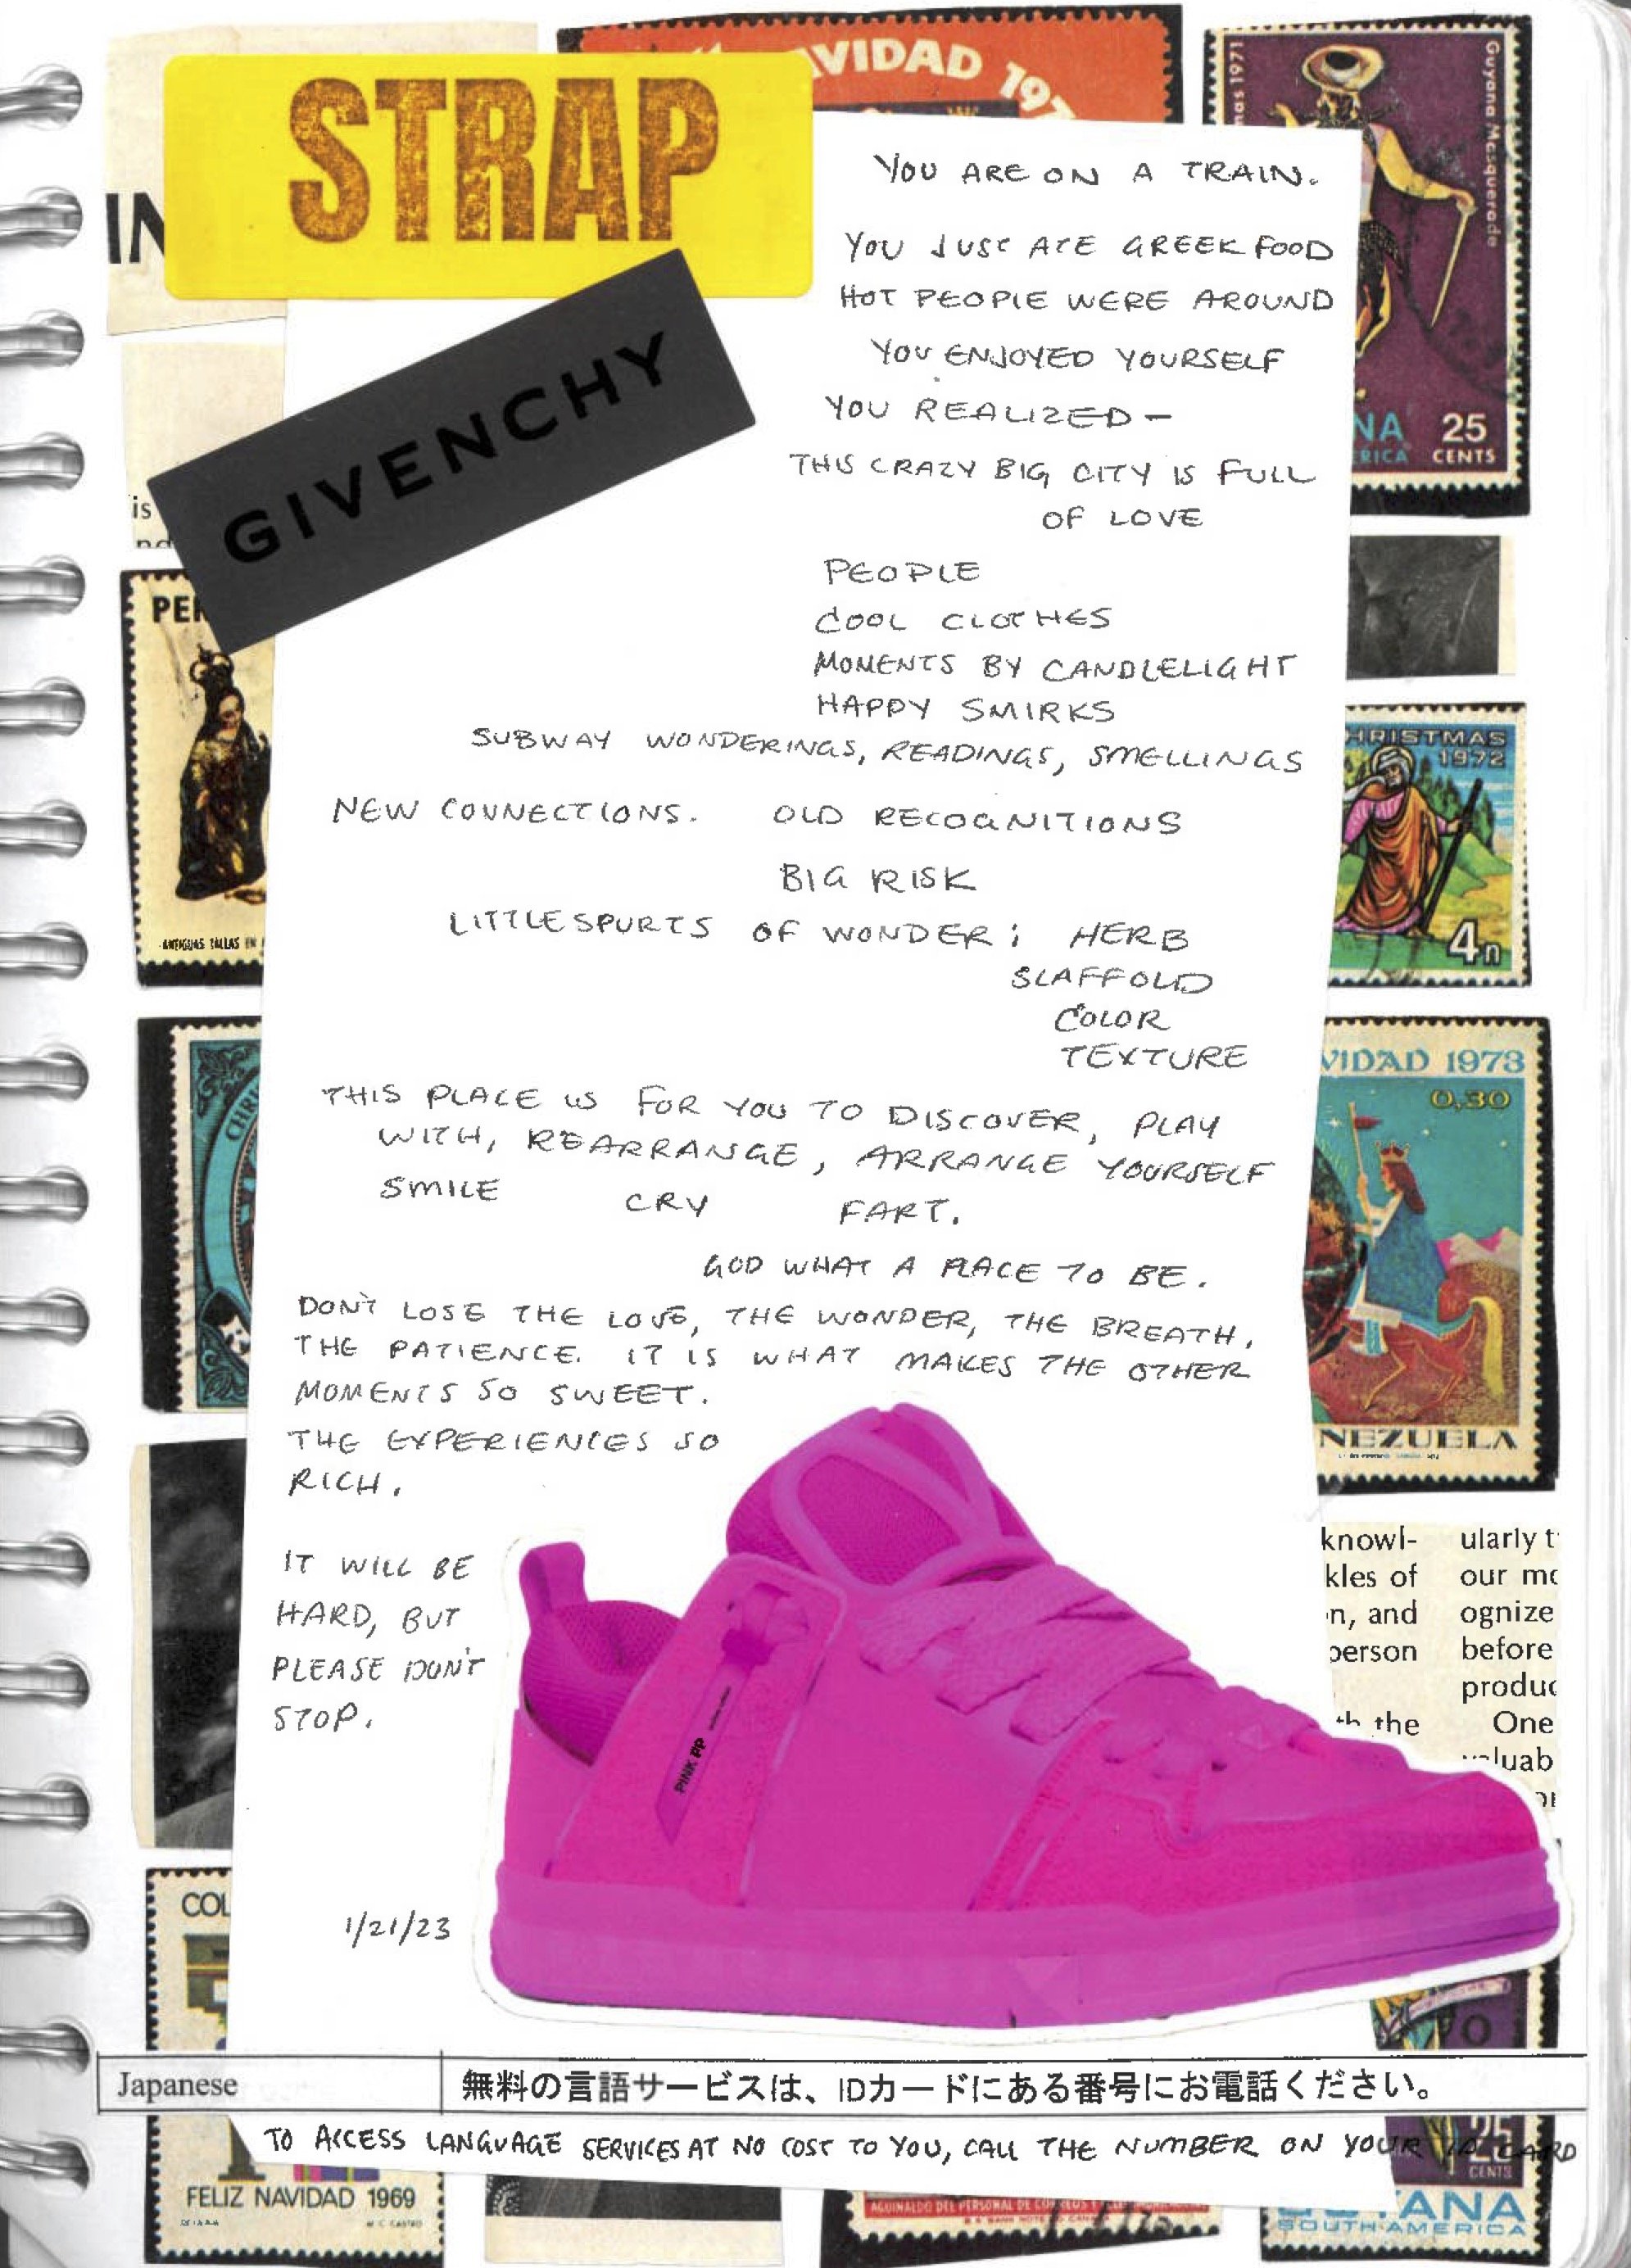 STRAP
VIDAD 197
Guyana Masquerade
as 1971
IN
GIVENCHY
YOU ARE ON A TRAIN.
YOU JUST ATE GREEK FOOD
HOT PEOPLE WERE AROUND
YOU ENJOYED YOURSELF
YOU REALIZED —
THIS CRAZY BIG CITY IS FULL
OF LOVE
NA 25
RICA CENTS
is
nd
PEOPLE
COOL CLOTHES
MOMENTS BY CANDLELIGHT
HAPPY SMIRKS
SUBWAY WONDERINGS, READINGS, SMELLINGS
NEW CONNECTIONS. OLD RECOGNITIONS
BIG RISK
LITTLE SPURTS OF WONDER; HERB
SCAFFOLD
COLOR
TEXTURE
PER
ANTIGUAS TALLAS EN
HRISTMAS
1972
4n
THIS PLACE IS FOR YOU TO DISCOVER, PLAY
WITH, REARRANGE, ARRANGE YOURSELF
SMILE CRY FART.
GOD WHAT A PLACE TO BE.
DON'T LOSE THE LOVE, THE WONDER, THE BREATH,
THE PATIENCE. IT IS WHAT MAKES THE OTHER
MOMENTS SO SWEET.
THE EXPERIENCES SO
RICH.
CHR
VIDAD 1973
0,30
NEZUELA
IT WILL BE
HARD, BUT
PLEASE DON'T
STOP.
knowl-
kles of
n, and
person
th the
ularly t
our mo
ognize
before
produc
One
luab
PINK PP
1/21/23
COL
Japanese 無料の言語サービスは、IDカードにある番号にお電話ください。
TO ACCESS LANGUAGE SERVICES AT NO COST TO YOU, CALL THE NUMBER ON YOUR ID CARD
FELIZ NAVIDAD 1969
M. C. CASTRO
AGUINALDO DEL PERSONAL DE CORREOS Y
25
CENTS
GUYANA
SOUTH AMERICA